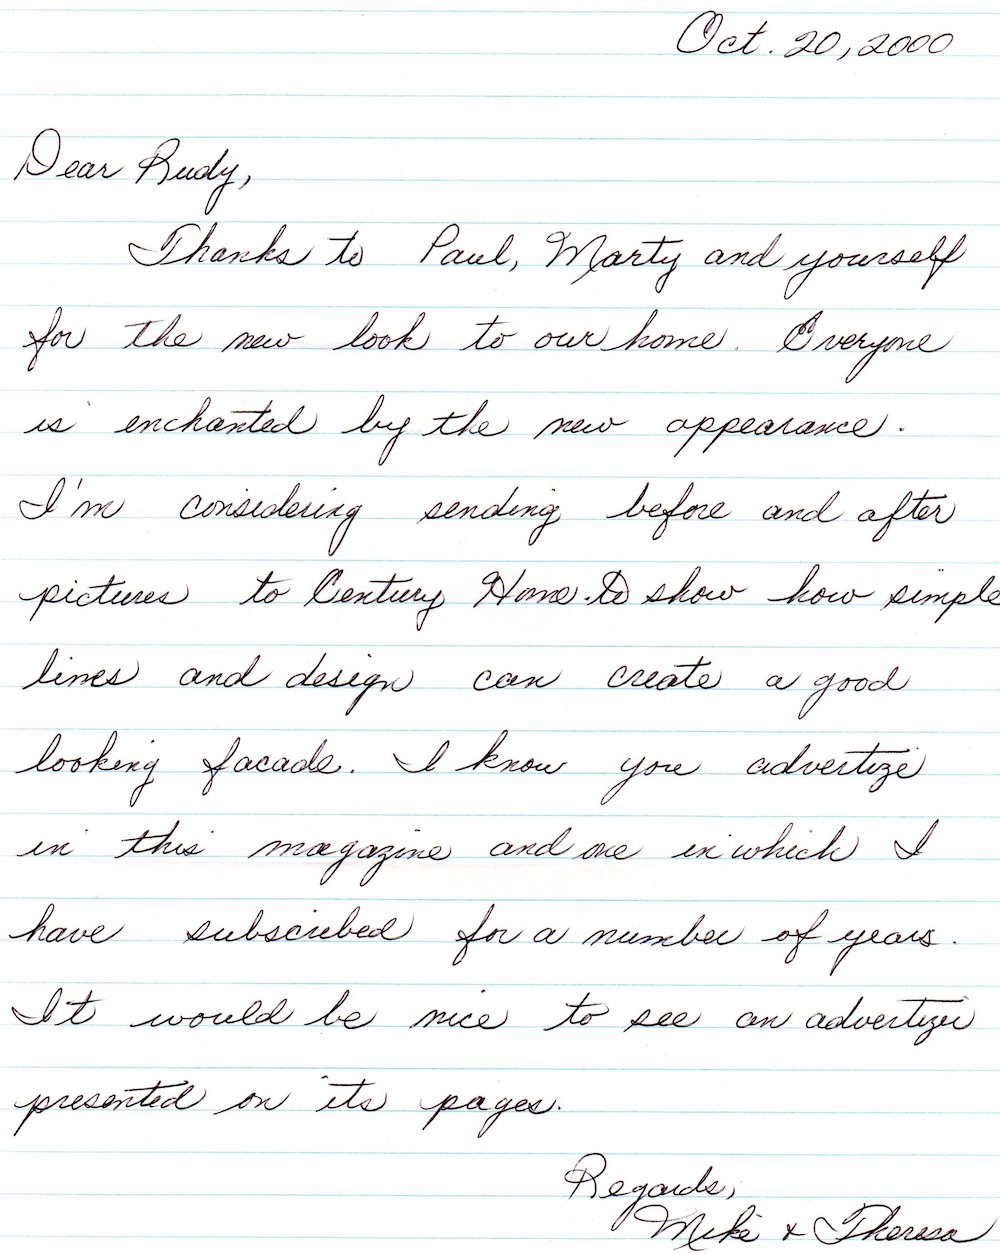 Oct. 20, 2000
Dear Rudy,
Thanks to Paul, Marty and yourself
for the new look to our home. Everyone
is enchanted by the new appearance.
I'm considering sending before and after
pictures to Century Home. To show how simple
lines and design can create a good
looking facade. I know you advertize
in this magazine and one in which I
have subscribed for a number of years.
It would be nice to see an advertizer
presented on its pages.
Regards,
Mike & Theresa